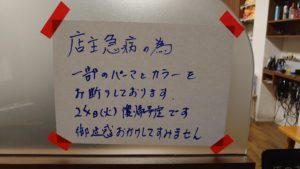 店主急病の為
一部のパーマとカラーを
お断りしております。
24日(火)復帰予定です
御迷惑おかけしてすみません